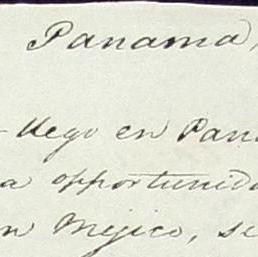 Panama,
-llego en Pana
a opportunida
n Mejico, se